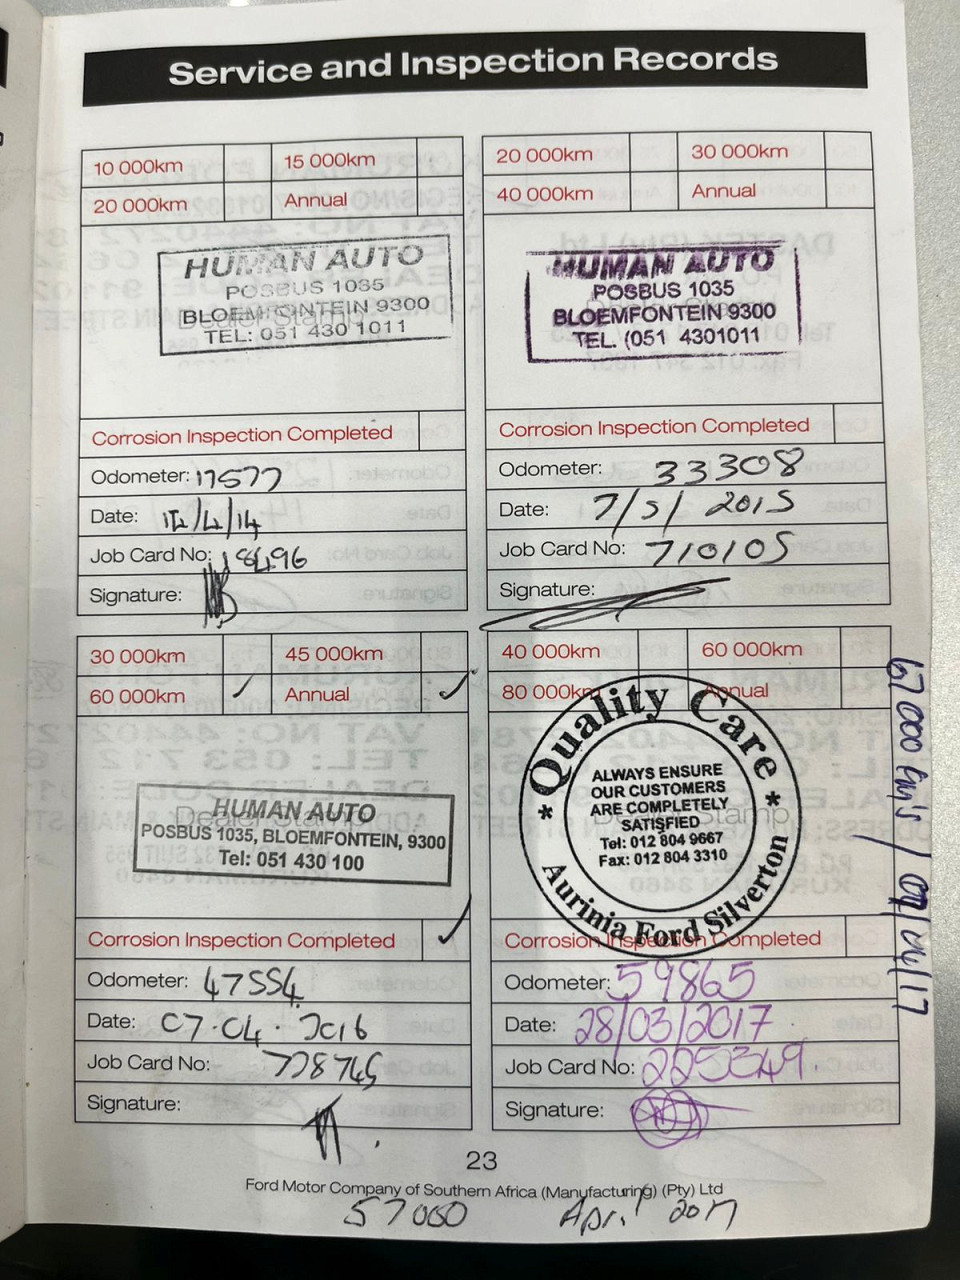 Service and Inspection Records
10 000km 15 000km
20 000km Annual
HUMAN AUTO
POSBUS 1035
BLOEMFONTEIN 9300
Dealer Stamp
TEL: 051 430 1011
Corrosion Inspection Completed
Odometer: 17577
Date: 14/4/14
Job Card No: 18496
Signature:
20 000km 30 000km
40 000km Annual
HUMAN AUTO
POSBUS 1035
BLOEMFONTEIN 9300
TEL. (051 4301011
Corrosion Inspection Completed
Odometer: 33308
Date: 7/5/2015
Job Card No: 710105
Signature:
30 000km 45 000km
60 000km ✓ Annual ✓
HUMAN AUTO
Dealer Stamp
POSBUS 1035, BLOEMFONTEIN, 9300
Tel: 051 430 100
Corrosion Inspection Completed ✓
Odometer: 47554
Date: 07.04.2016
Job Card No: 728745
Signature:
40 000km 60 000km
80 000km Annual
Quality Care
ALWAYS ENSURE
OUR CUSTOMERS
ARE COMPLETELY
Dealer Stamp
SATISFIED
Tel: 012 804 9667
Fax: 012 804 3310
Aurinia Ford Silverton
Corrosion Inspection Completed
Odometer: 59865
Date: 28/03/2017
Job Card No: 225349
Signature:
67 000 km's /17
23
Ford Motor Company of Southern Africa (Manufacturing) (Pty) Ltd
57000 April 2017